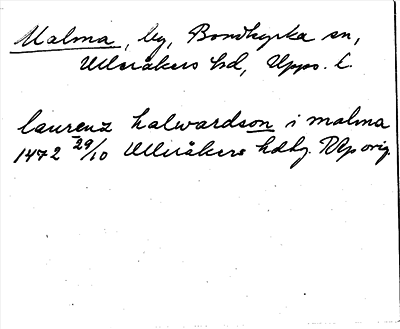 Malma, by, Bondkyrka sn,
Ulleråkers hd, Upps. l.
laurenz halwardson i malma
1472 29/10 Ulleråkers hdby. RAp orig.